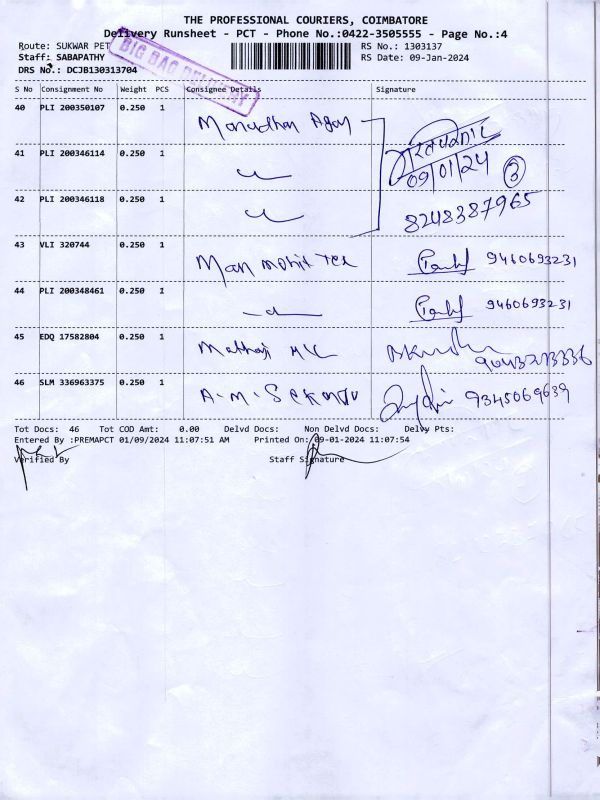 THE PROFESSIONAL COURIERS, COIMBATORE
Delivery Runsheet - PCT - Phone No.:0422-3505555 - Page No.:4
Route: SUKWAR PET RS No.: 1303137
Staff: SABAPATHY RS Date: 09-Jan-2024
DRS No.: DCJB130313704
BIG BAG DELIVERY
S No Consignment No Weight PCS Consignee Details Signature
40 PLI 200350107 0.250 1
41 PLI 200346114 0.250 1 09/01/24 3
42 PLI 200346118 0.250 1 8248387965
43 VLI 320744 0.250 1 Man mohit Tex 9460693231
44 PLI 200348461 0.250 1 9460693231
45 EDQ 17582804 0.250 1
46 SLM 336963375 0.250 1 A.M. 9345069639
Tot Docs: 46 Tot COD Amt: 0.00 Delvd Docs: Non Delvd Docs: Delvy Pts:
Entered By :PREMAPCT 01/09/2024 11:07:51 AM Printed On: 09-01-2024 11:07:54
Verified By Staff Signature